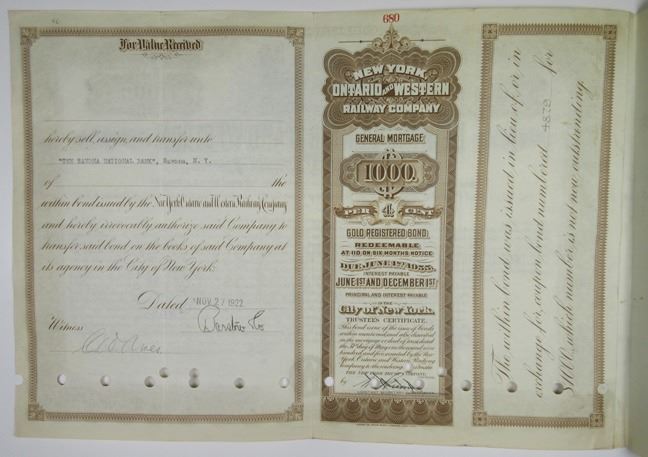 For Value Received
hereby sell, assign, and transfer unto
"THE RAVENA NATIONAL BANK", Ravena, N. Y.
of the
within bond issued by the New York, Ontario and Western Railway Company
and hereby irrevocably authorize said Company to
transfer said bond on the books of said Company at
its agency in the City of New York.
Dated NOV 27 1922
Barstow & Co
Witness
680
NEW YORK
ONTARIO AND WESTERN
RAILWAY COMPANY
GENERAL MORTGAGE
$
1000.
PER 4 CENT
GOLD REGISTERED BOND
REDEEMABLE
AT 110 ON SIX MONTHS NOTICE
DUE JUNE 1ST 1955.
INTEREST PAYABLE
JUNE 1ST AND DECEMBER 1ST
PRINCIPAL AND INTEREST PAYABLE
IN THE
City of New York.
TRUSTEE'S CERTIFICATE.
This bond is one of the issue of bonds
within mentioned and also described
in the mortgage or deed of trust dated
the 31st day of May in the nineteen
hundred and five executed by the New
York, Ontario and Western Railway
Company to the undersigned Trustee
THE NEW YORK TRUST COMPANY,
by
The within bond was issued in lieu of, or in
exchange for, coupon bond numbered 4838 for
$1000, which number is not now outstanding.